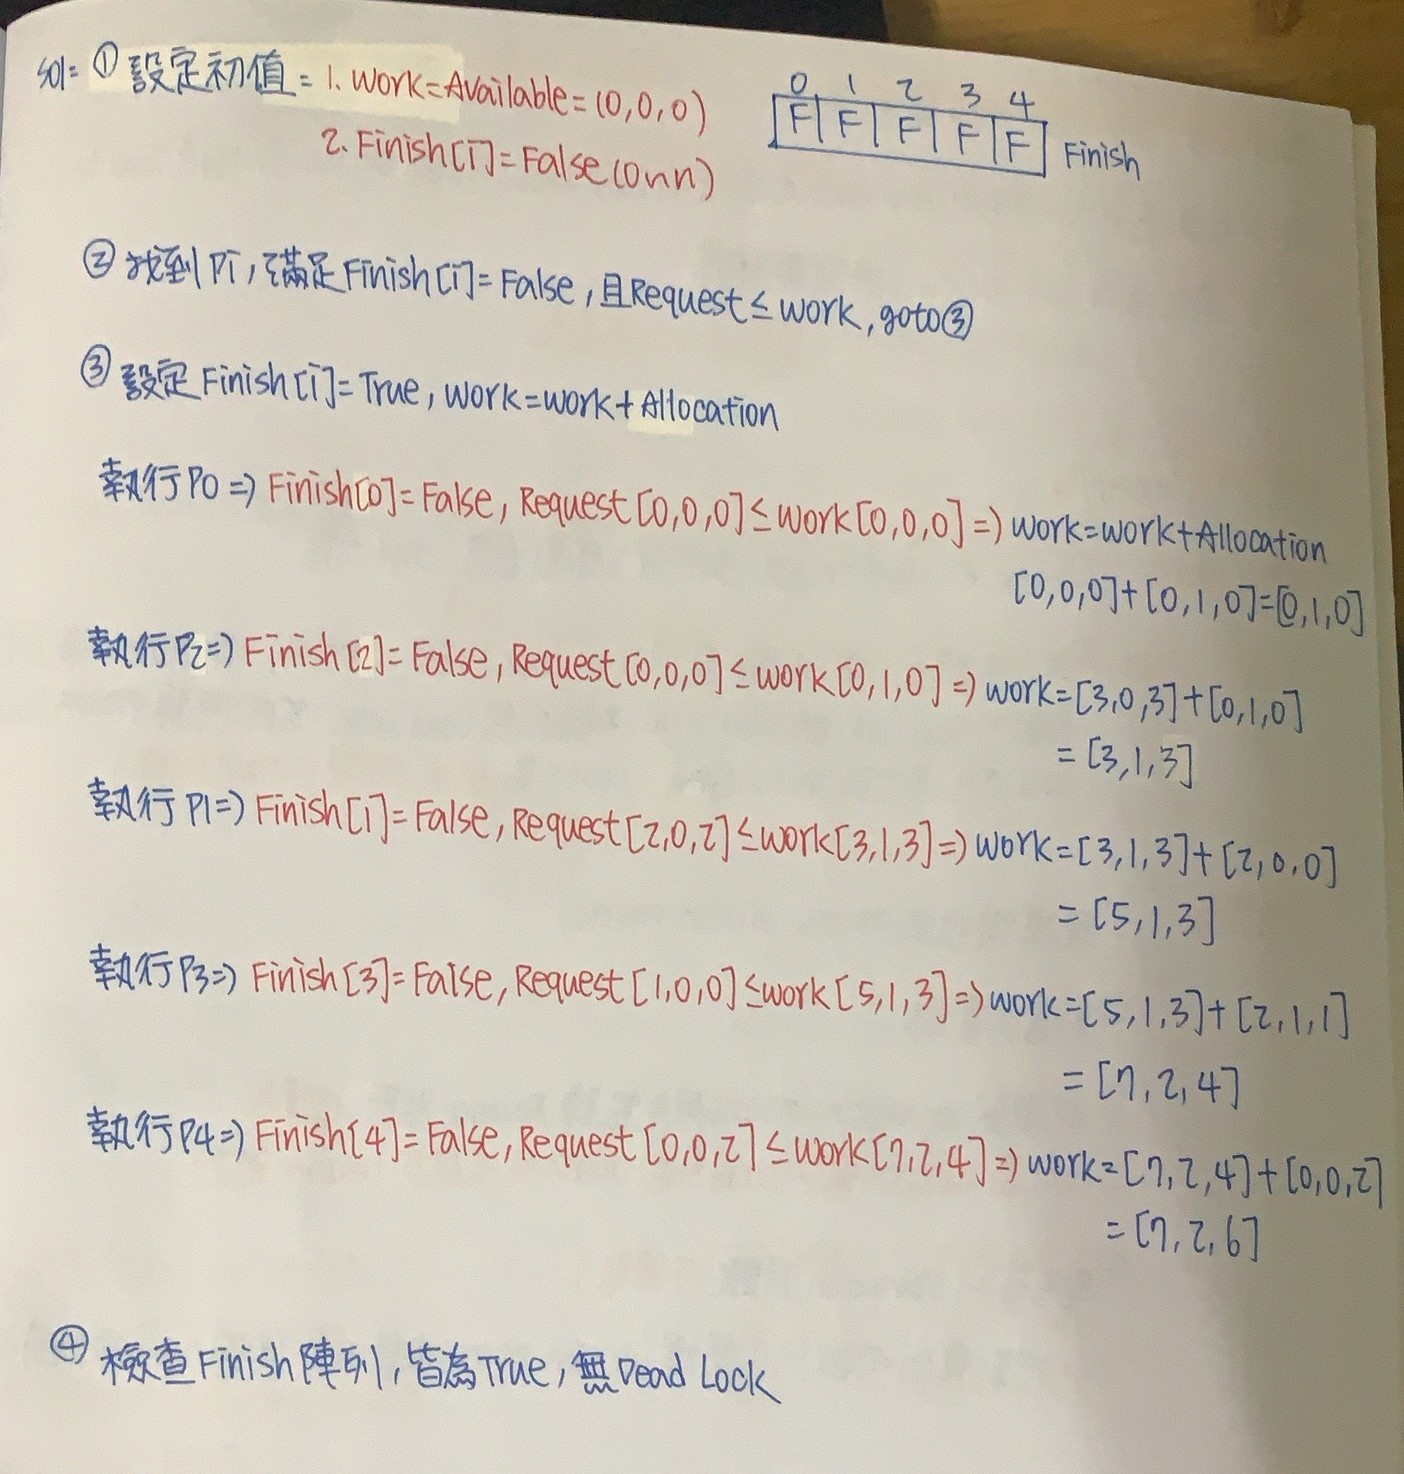 sol= ①設定初值=1. Work=Available=(0,0,0)
2. Finish[i]=False(0~n)
0 1 2 3 4
F F F F F Finish
②找到Pi,滿足Finish[i]=False,且Request≤work,goto③
③設定Finish[i]=True,work=work+Allocation
執行P0=> Finish[0]=False, Request[0,0,0]≤work[0,0,0]=>work=work+Allocation
[0,0,0]+[0,1,0]=[0,1,0]
執行P2=> Finish[2]=False, Request[0,0,0]≤work[0,1,0]=>work=[3,0,3]+[0,1,0]
=[3,1,3]
執行P1=> Finish[1]=False, Request[2,0,2]≤work[3,1,3]=>work=[3,1,3]+[2,0,0]
=[5,1,3]
執行P3=> Finish[3]=False, Request[1,0,0]≤work[5,1,3]=>work=[5,1,3]+[2,1,1]
=[7,2,4]
執行P4=> Finish[4]=False, Request[0,0,2]≤work[7,2,4]=>work=[7,2,4]+[0,0,2]
=[7,2,6]
④檢查Finish陣列,皆為True,無Dead Lock